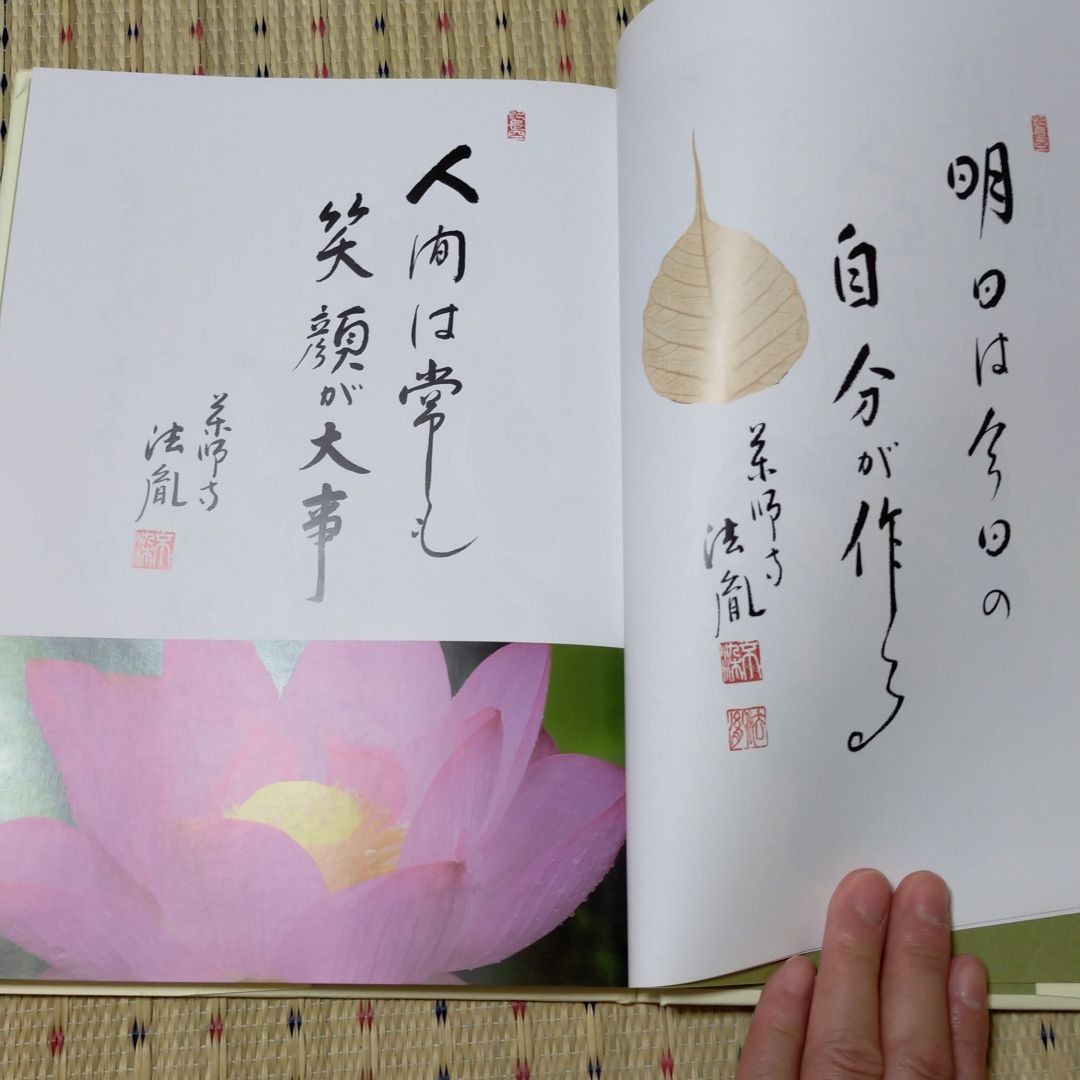 明日は今日の
自分が作る
薬師寺
法胤
人間は常も
笑顔が大事
薬師寺
法胤